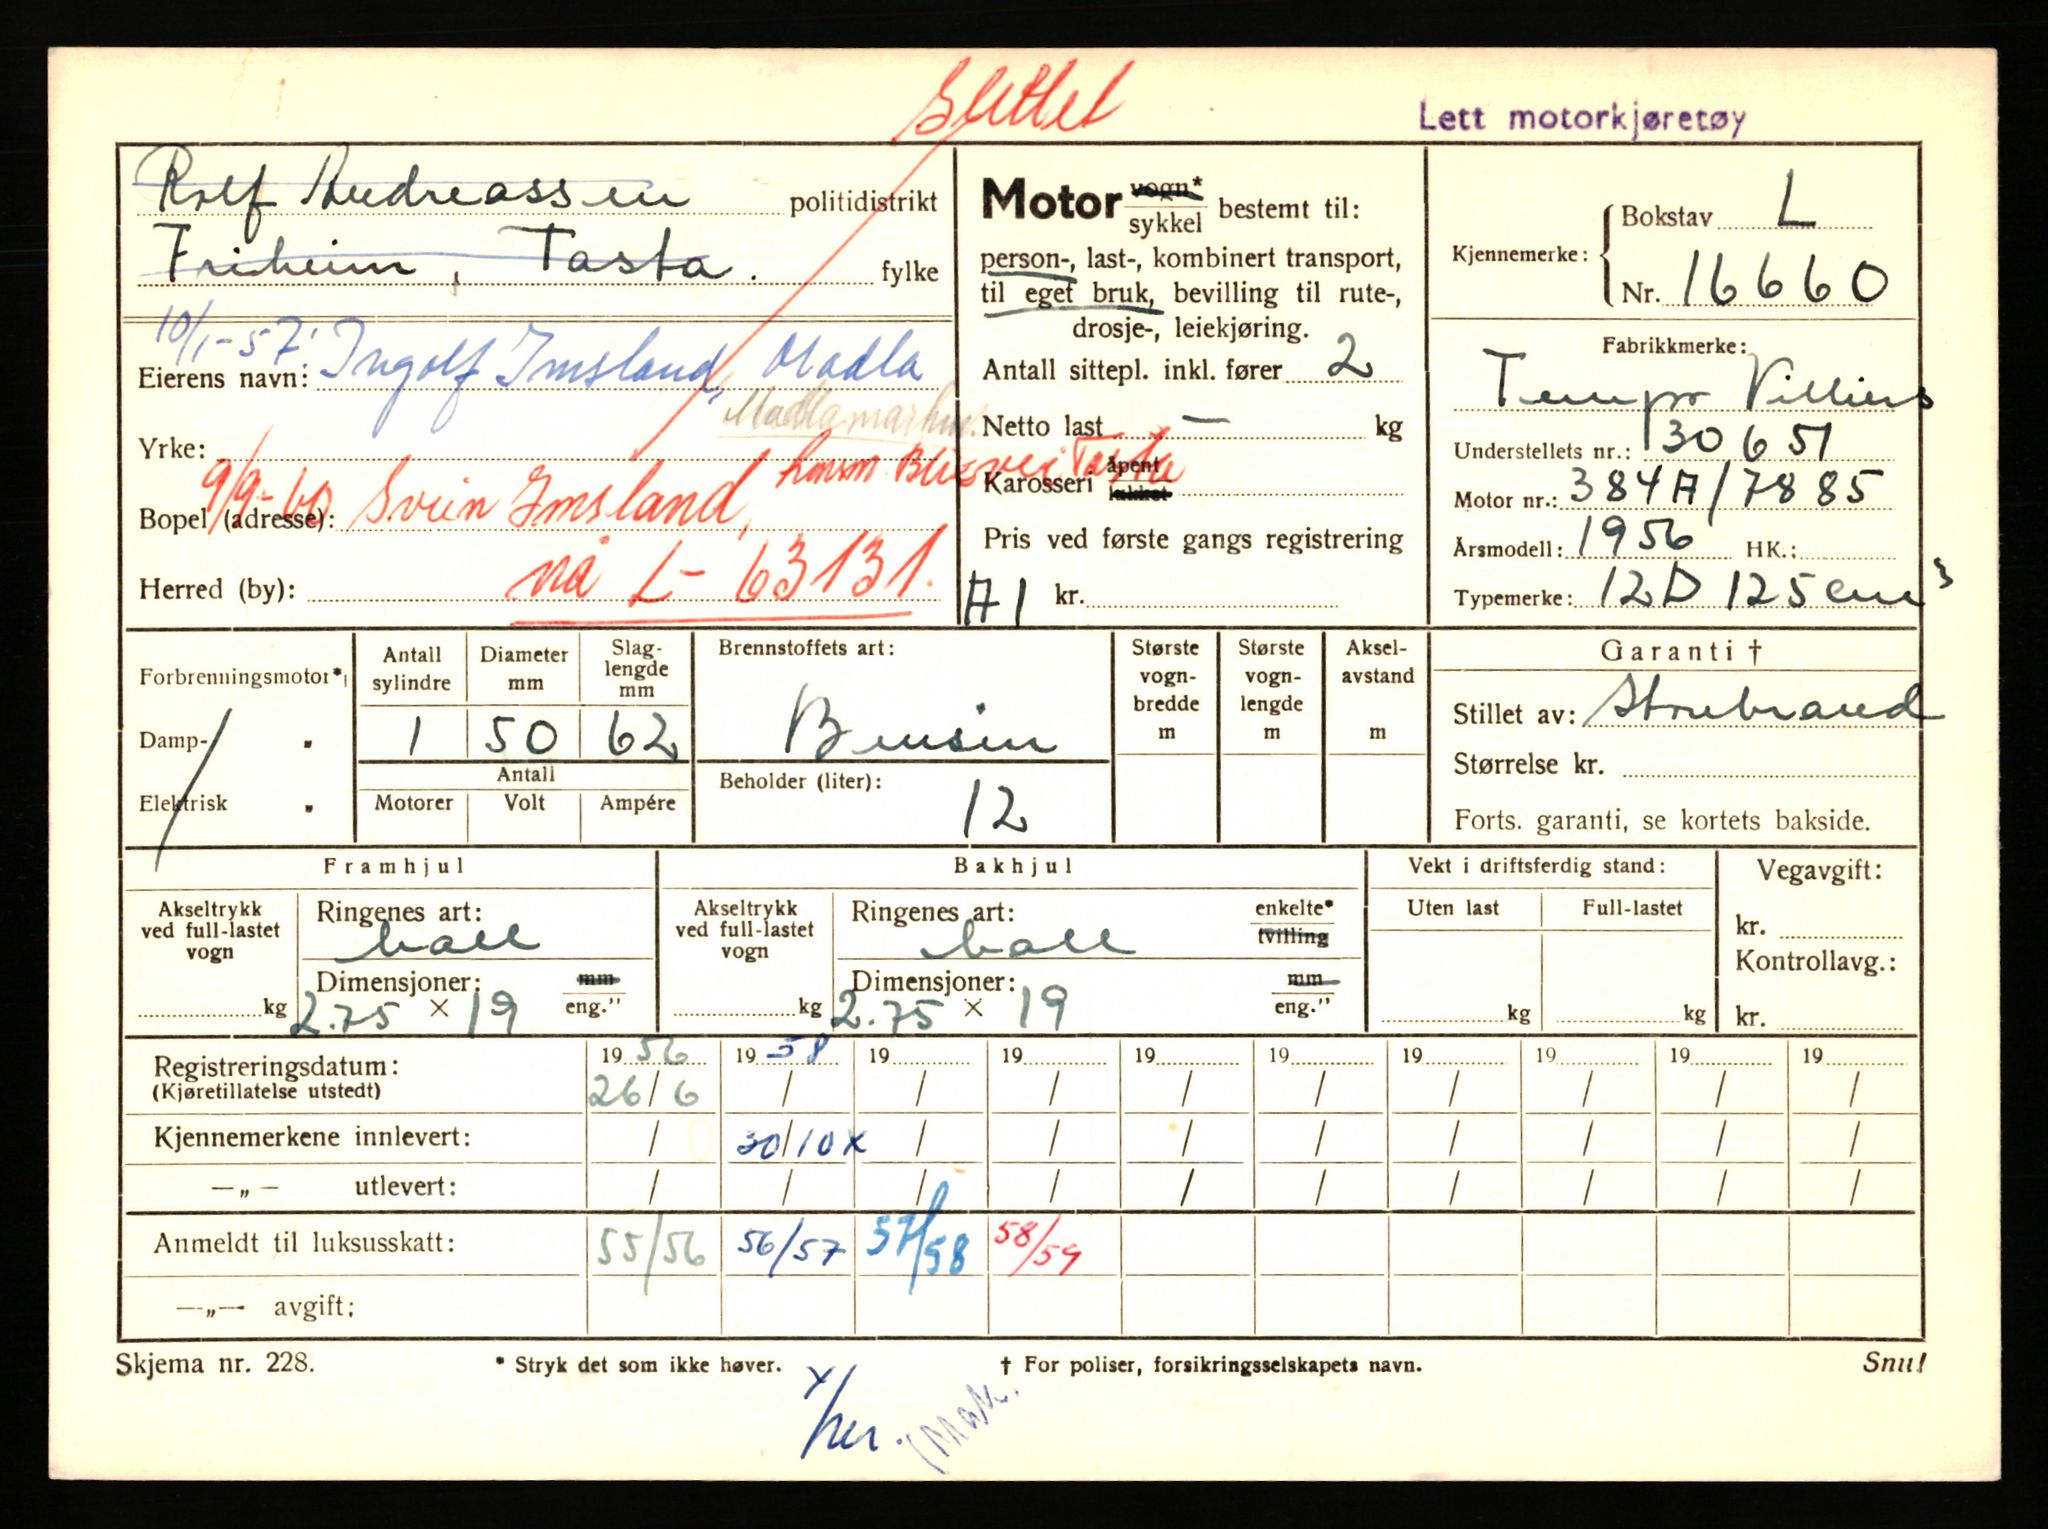 Slettet
Lett motorkjøretøy
Rolf Andreassen politidistrikt
Friheim, Tasta. fylke
10/1-57: Ingolf Imsland, Madla
Eierens navn:
Madlamarkun.
Yrke:
9/9-60 Svein Imsland, Tasta
Bopel (adresse):
Herred (by): nå L-63131.
Motor vogn* sykkel bestemt til:
person-, last-, kombinert transport,
til eget bruk, bevilling til rute-,
drosje-, leiekjøring.
Antall sittepl. inkl. fører 2
Netto last — kg
Karosseri åpent lukket
Pris ved første gangs registrering
A1 kr.
Kjennemerke: Bokstav L
Nr. 16660
Fabrikkmerke:
Tempo Villiers
Understellets nr.: 130651
Motor nr.: 384A/7885
Årsmodell: 1956 HK.:
Typemerke: 12D 125 cm³
Forbrenningsmotor*
Damp- „
Elektrisk „
Antall sylindre Diameter mm Slag-lengde mm
1 50 62
Antall
Motorer Volt Ampére
Brennstoffets art:
Bensin
Beholder (liter):
12
Største vogn-bredde m
Største vogn-lengde m
Aksel-avstand m
Garanti †
Stillet av: Storebrand
Størrelse kr.
Forts. garanti, se kortets bakside.
Framhjul
Akseltrykk ved full-lastet vogn
kg
Ringenes art:
ball
Dimensjoner: mm eng.”
2.75 × 19
Bakhjul
Akseltrykk ved full-lastet vogn
kg
Ringenes art: enkelte* tvilling
ball
Dimensjoner: mm eng.”
2.75 × 19
Vekt i driftsferdig stand:
Uten last Full-lastet
kg kg
Vegavgift:
kr.
Kontrollavg.:
kr.
Registreringsdatum: 1956 1958 19 19 19 19 19 19 19 19
(Kjøretillatelse utstedt) 26/6 / / / / / / / / /
Kjennemerkene innlevert: / 30/10 x / / / / / / / /
—„— utlevert: / / / / / / / / / /
Anmeldt til luksusskatt: 55/56 56/57 57/58 58/59
—„— avgift:
Skjema nr. 228. * Stryk det som ikke høver. † For poliser, forsikringsselskapets navn. Snu!